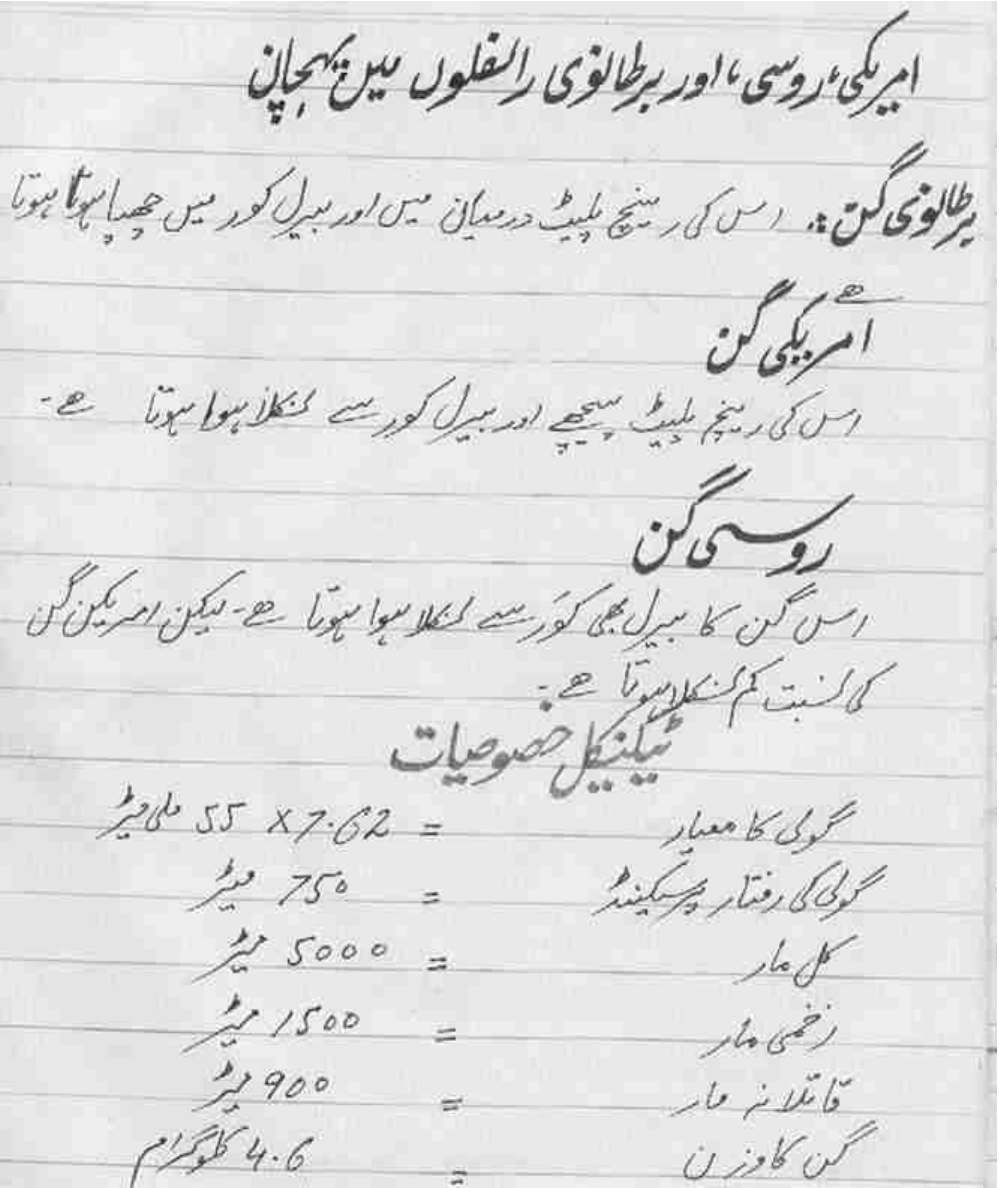 امریکی، روسی، اور برطانوی رائفلوں میں پہچان
برطانوی گن:۔ اس کی رینج پلیٹ درمیان میں اور بیرل کور میں چھپا ہوتا ہوتا
ھے
امریکی گن
اس کی رینج پلیٹ پیچھے اور بیرل کور سے نکلا ہوا ہوتا ھے۔
روسی گن
اس گن کا بیرل بھی کوَر سے نکلا ہوا ہوتا ھے۔ لیکن امریکن گن
کی نسبت کم نکلا ہوتا ھے۔
ٹیکنیکل خصوصیات
گولی کا معیار = 7.62 X 55 ملی میٹر
گولی کی رفتار پر سیکینڈ = 750 میٹر
کل مار = 5000 میٹر
زخمی مار = 1500 میٹر
قاتلانہ مار = 900 میٹر
گن کا وزن = 4.6 کلوگرام